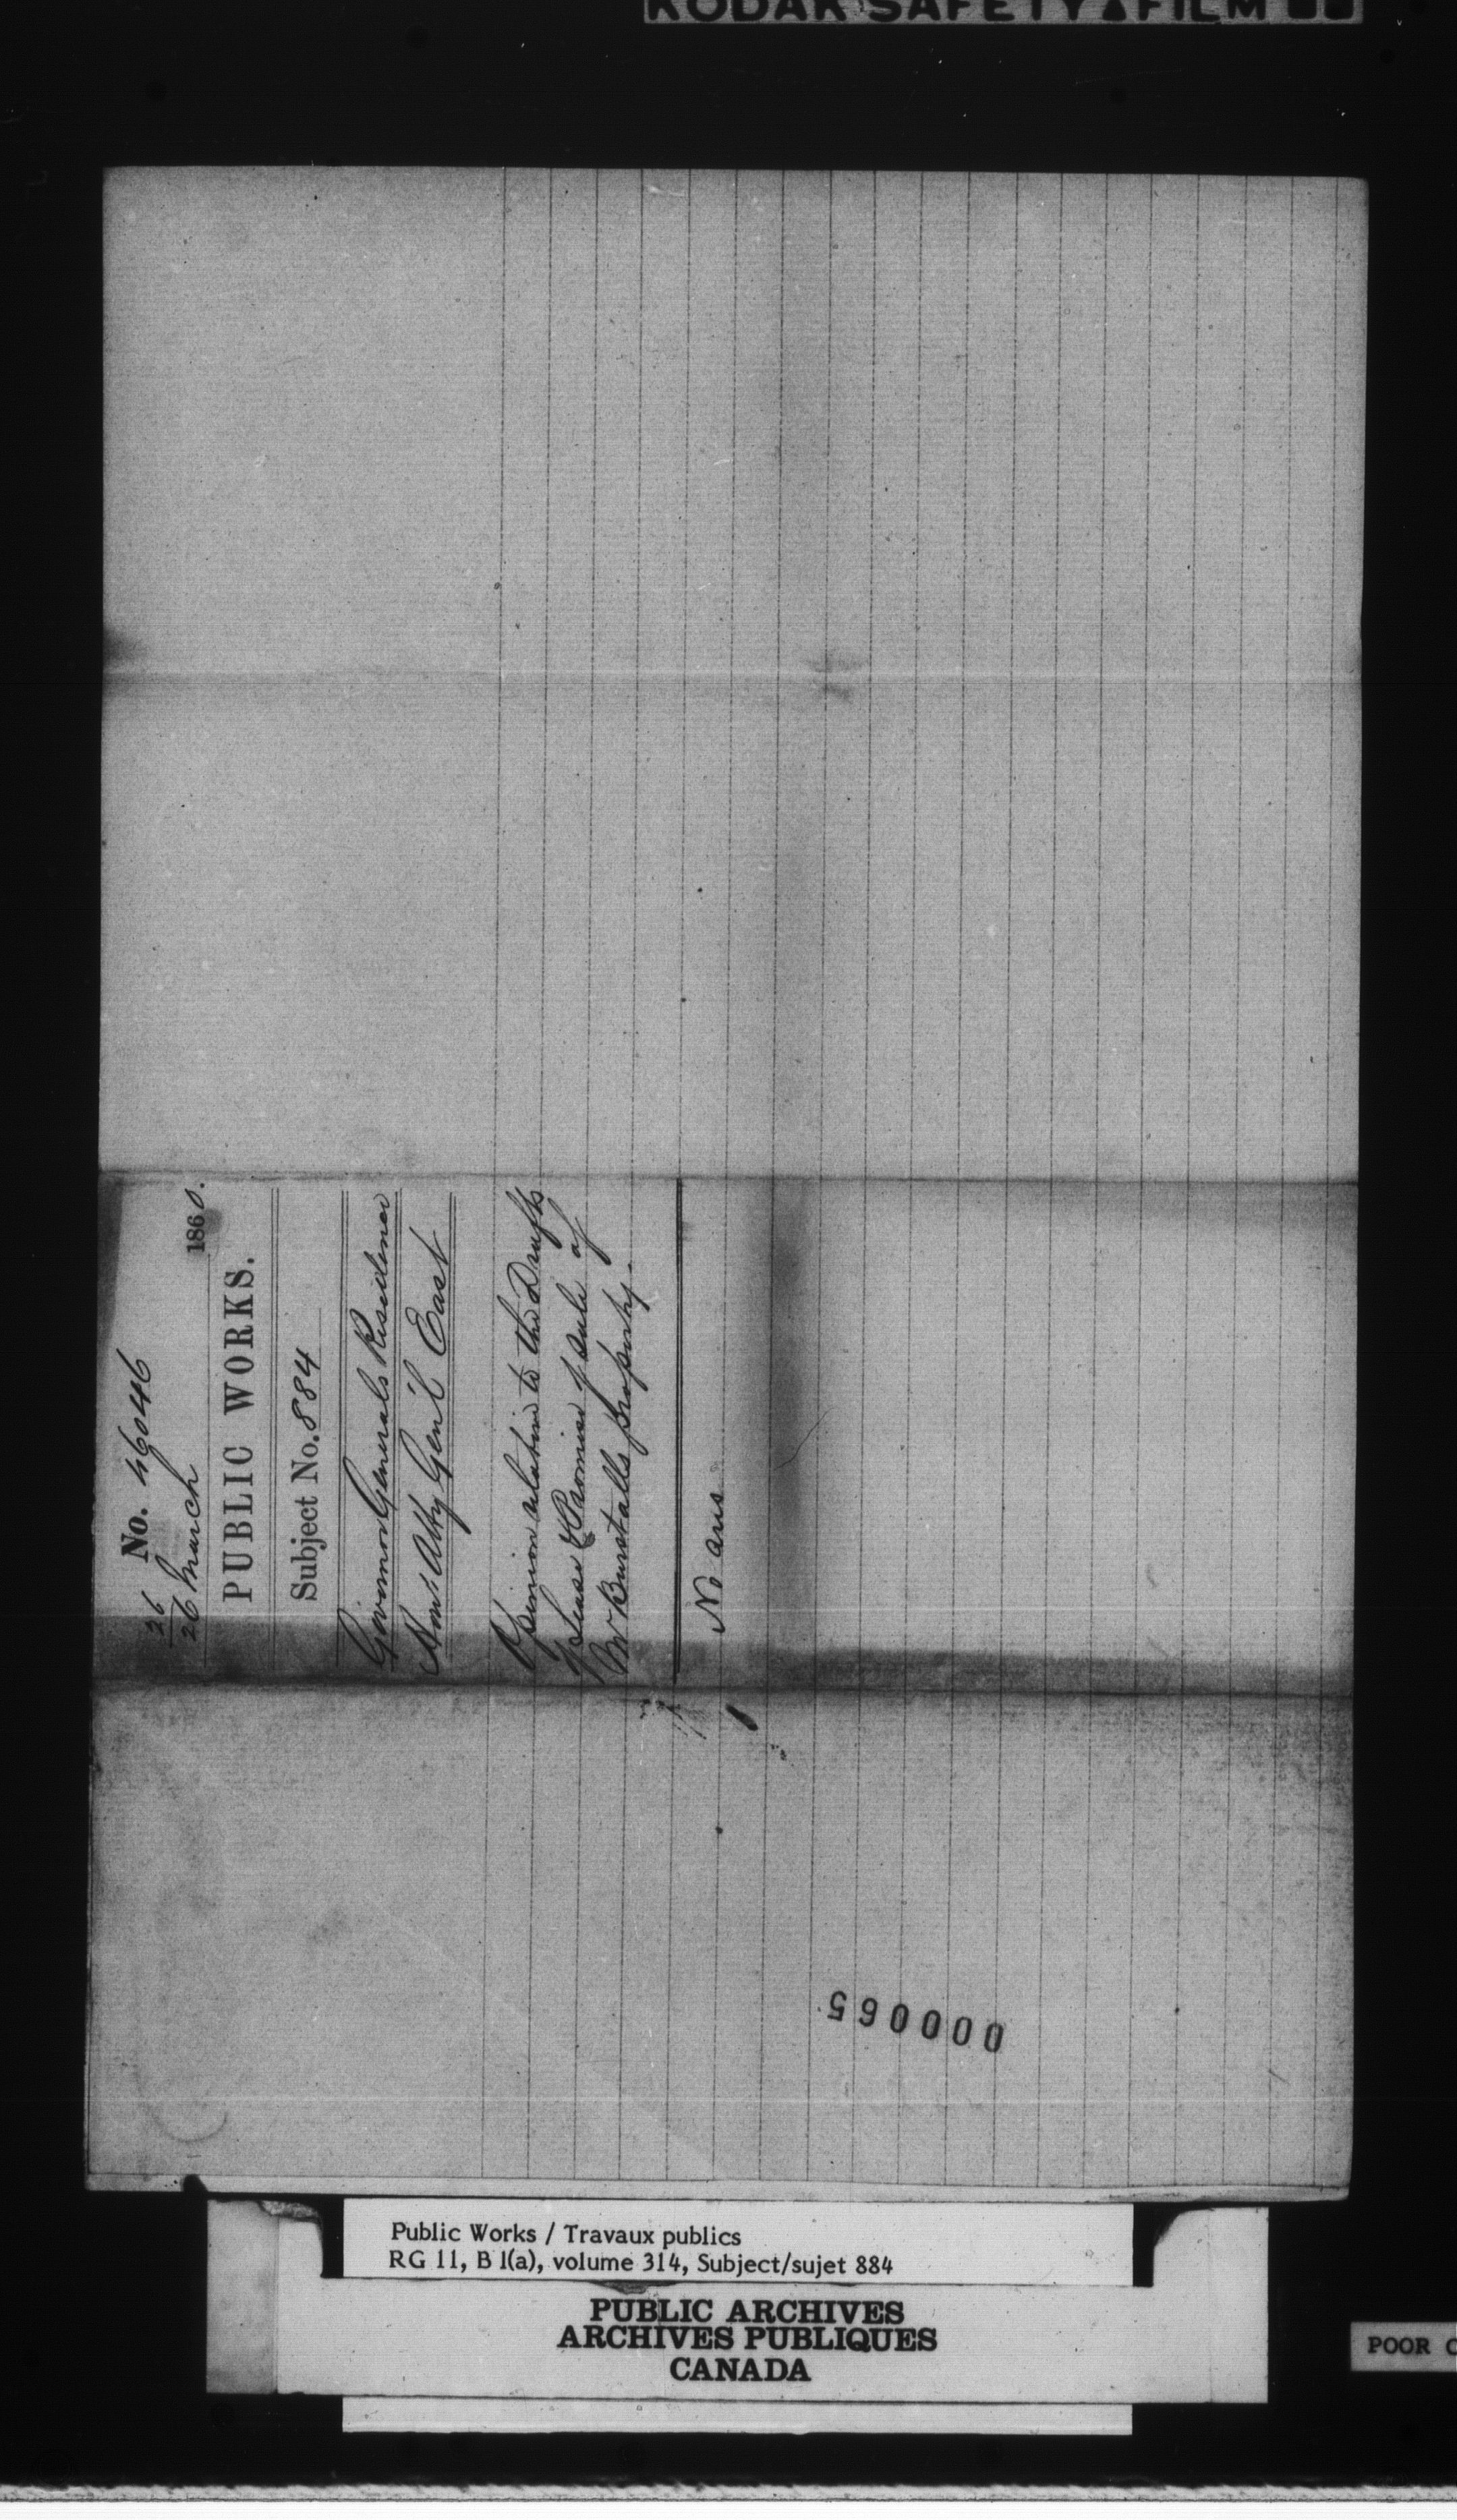 KODAK SAFETY FILM
No. 46046
26
26 March 1860.
PUBLIC WORKS.
Subject No. 884
Governor Generals Residence
Hon. Atty Gen'l East
Opinion relative to the Drafts
of Lease & Promise of sale of
Mr Burstalls property.
No ans
000065
Public Works / Travaux publics
RG 11, B 1(a), volume 314, Subject/sujet 884
PUBLIC ARCHIVES
ARCHIVES PUBLIQUES
CANADA
POOR C